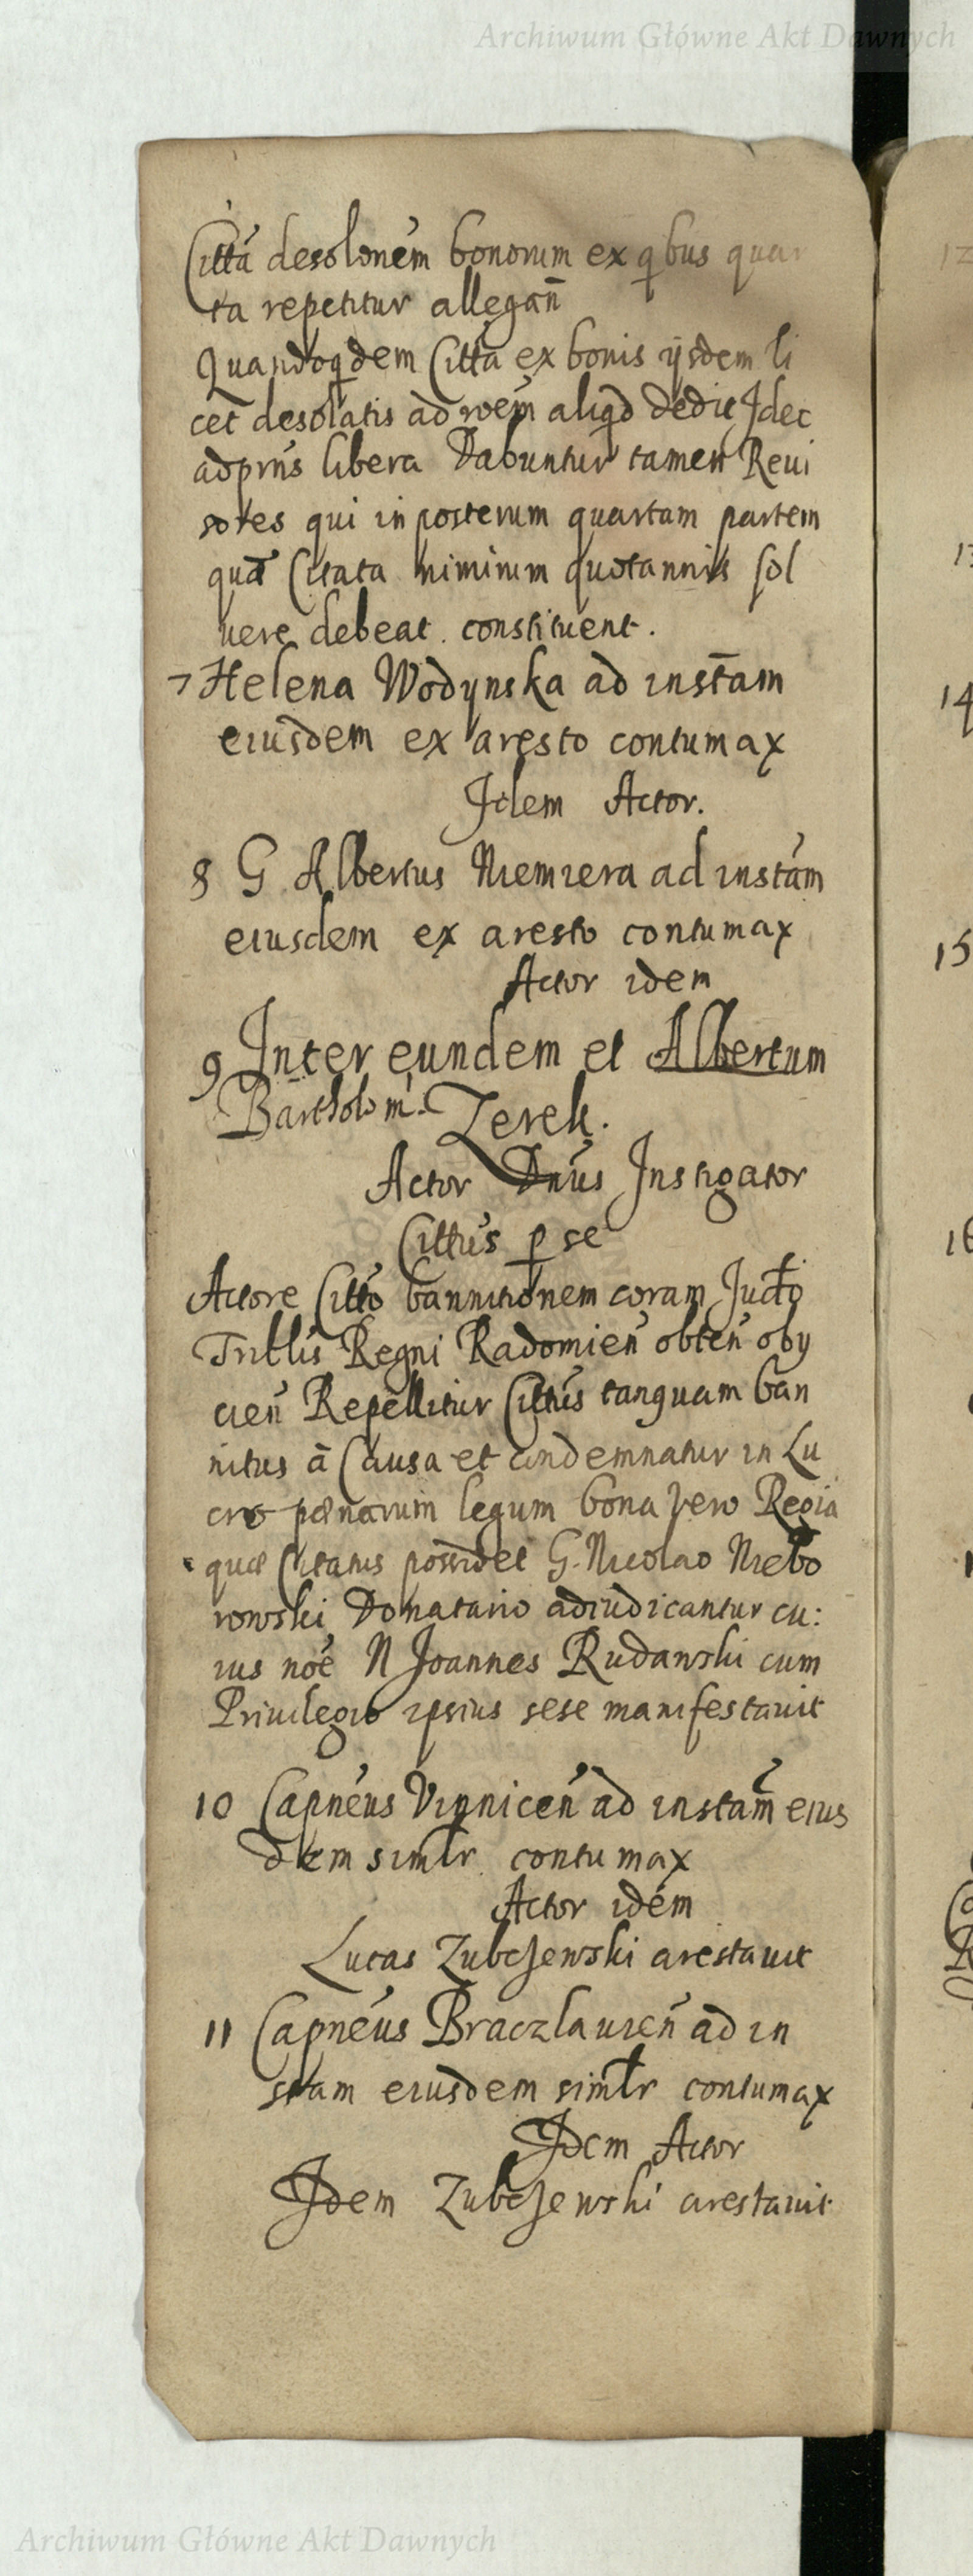 Archiwum Główne Akt Dawnych
Citta desolonem bonorum ex qbus quar
ta repetitur allegan̄
Quandoqdem Citta ex bonis ijsdem li
cet desolatis ad rōem aliqd dedit Idec
adprn̄s libera Dabuntur tamen Reui
sores qui in posterum quartam partem
quā Citata nimirum quotannis sol
uere debeat. constituent.
7 Helena Wodynska ad inst̄am
eiusdem ex aresto contumax
Idem Actor.
8 G Albertus Niemiera ad instām
eiusdem ex aresto contumax
Actor idem
9 Inter eundem et Albertum
Bartholom. Zerek.
Actor Dnūs Instigator
Cittus p se
Actore Citto bannitionem coram Judo
Tribłis Regni Radomien̄ obten̄ obij
cien̄ Repellitur Cittus tanquam ban
nitus ā Causa et condemnatur in Lu
cro pænarum legum bona vero Regia
quæ Citatus possidet G. Nicolao Niebo
rowski Donatario adiudicantur cu:
ius noē N Joannes Rudawski cum
Priuilegio ipsius sese manifestauit
10 Capneus Vinnicen̄ ad instam̄ eius
dem simlr contumax
Actor idem
Lucas Zubczewski arestauit
11 Capneus Braczlauien̄ ad in
stam eiusdem simlr contumax
Idem Actor
Idem Zubczewski arestauit
12
13
14
15
16
Archiwum Główne Akt Dawnych